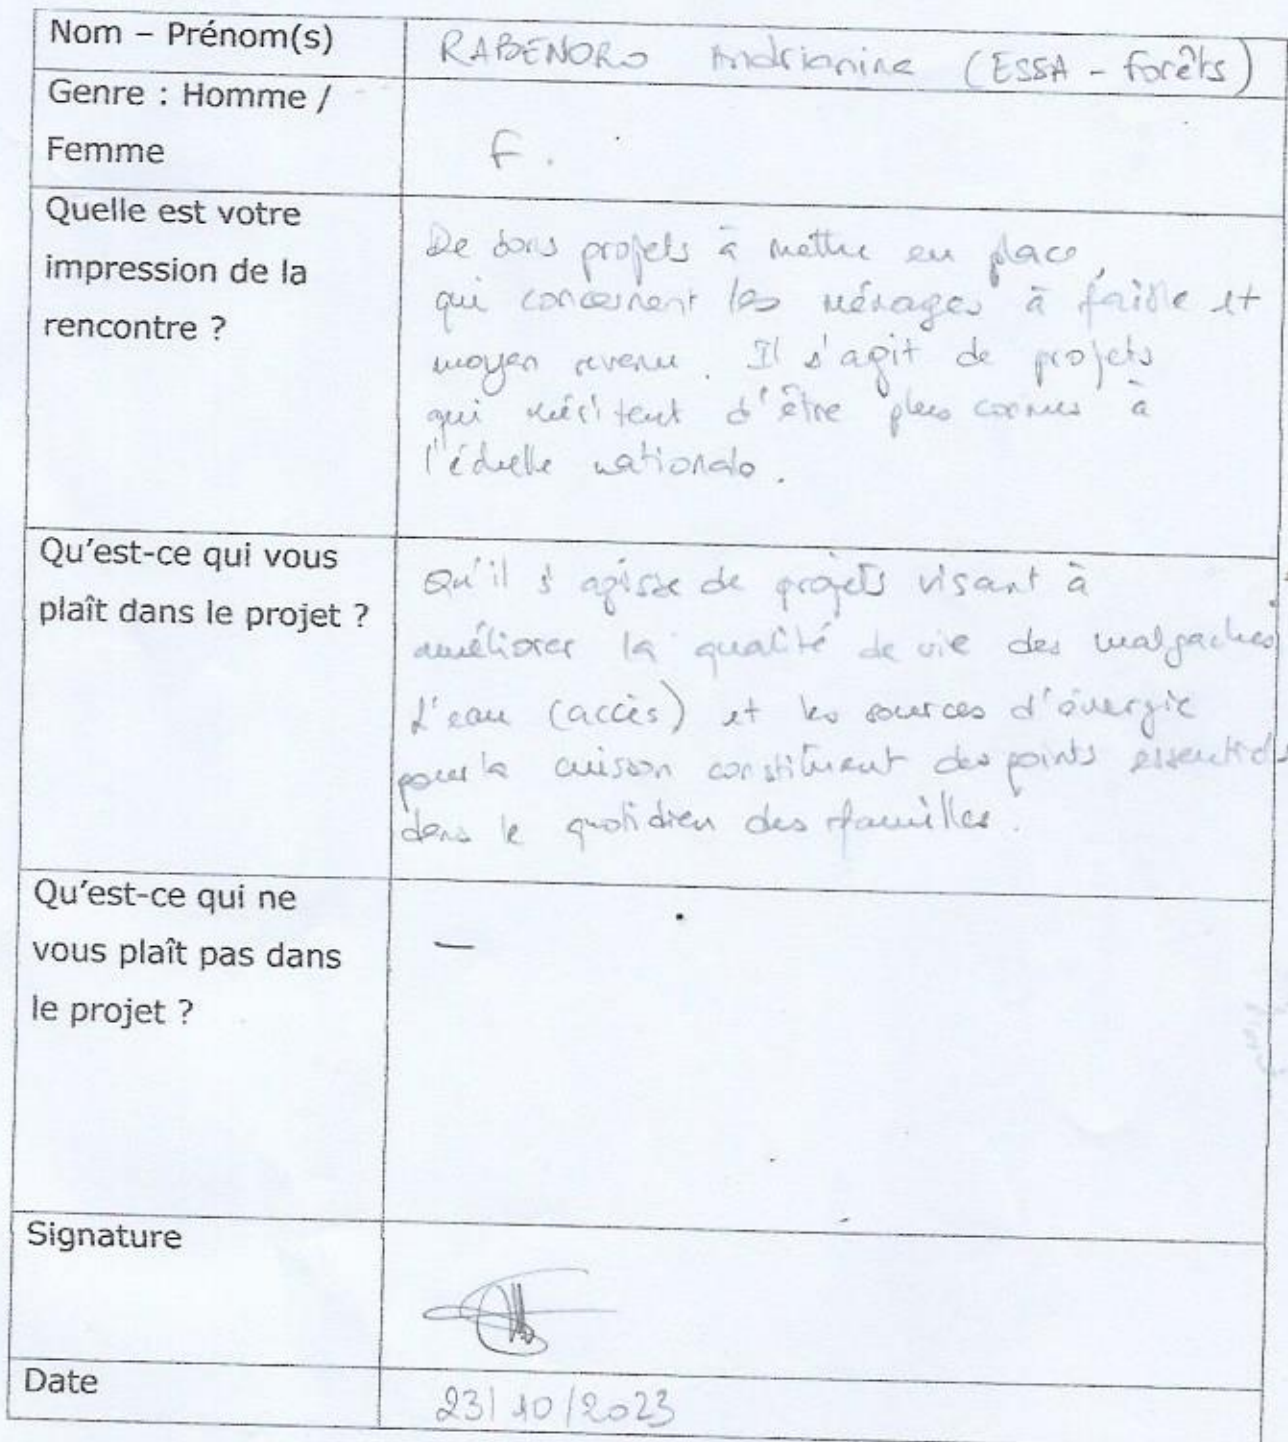 Nom – Prénom(s)
RABENORO Andrianina (ESSA - forêts)
Genre : Homme /
Femme
F.
Quelle est votre
impression de la
rencontre ?
De bons projets à mettre en place,
qui concernent les ménages à faible et
moyen revenu. Il s'agit de projets
qui méritent d'être plus connus à
l'échelle nationale.
Qu'est-ce qui vous
plaît dans le projet ?
Qu'il s'agisse de projets visant à
améliorer la qualité de vie des malgaches
L'eau (accès) et les sources d'énergie
pour la cuisson constituent des points essentiels
dans le quotidien des familles.
Qu'est-ce qui ne
vous plaît pas dans
le projet ?
—
Signature
Date
23/10/2023